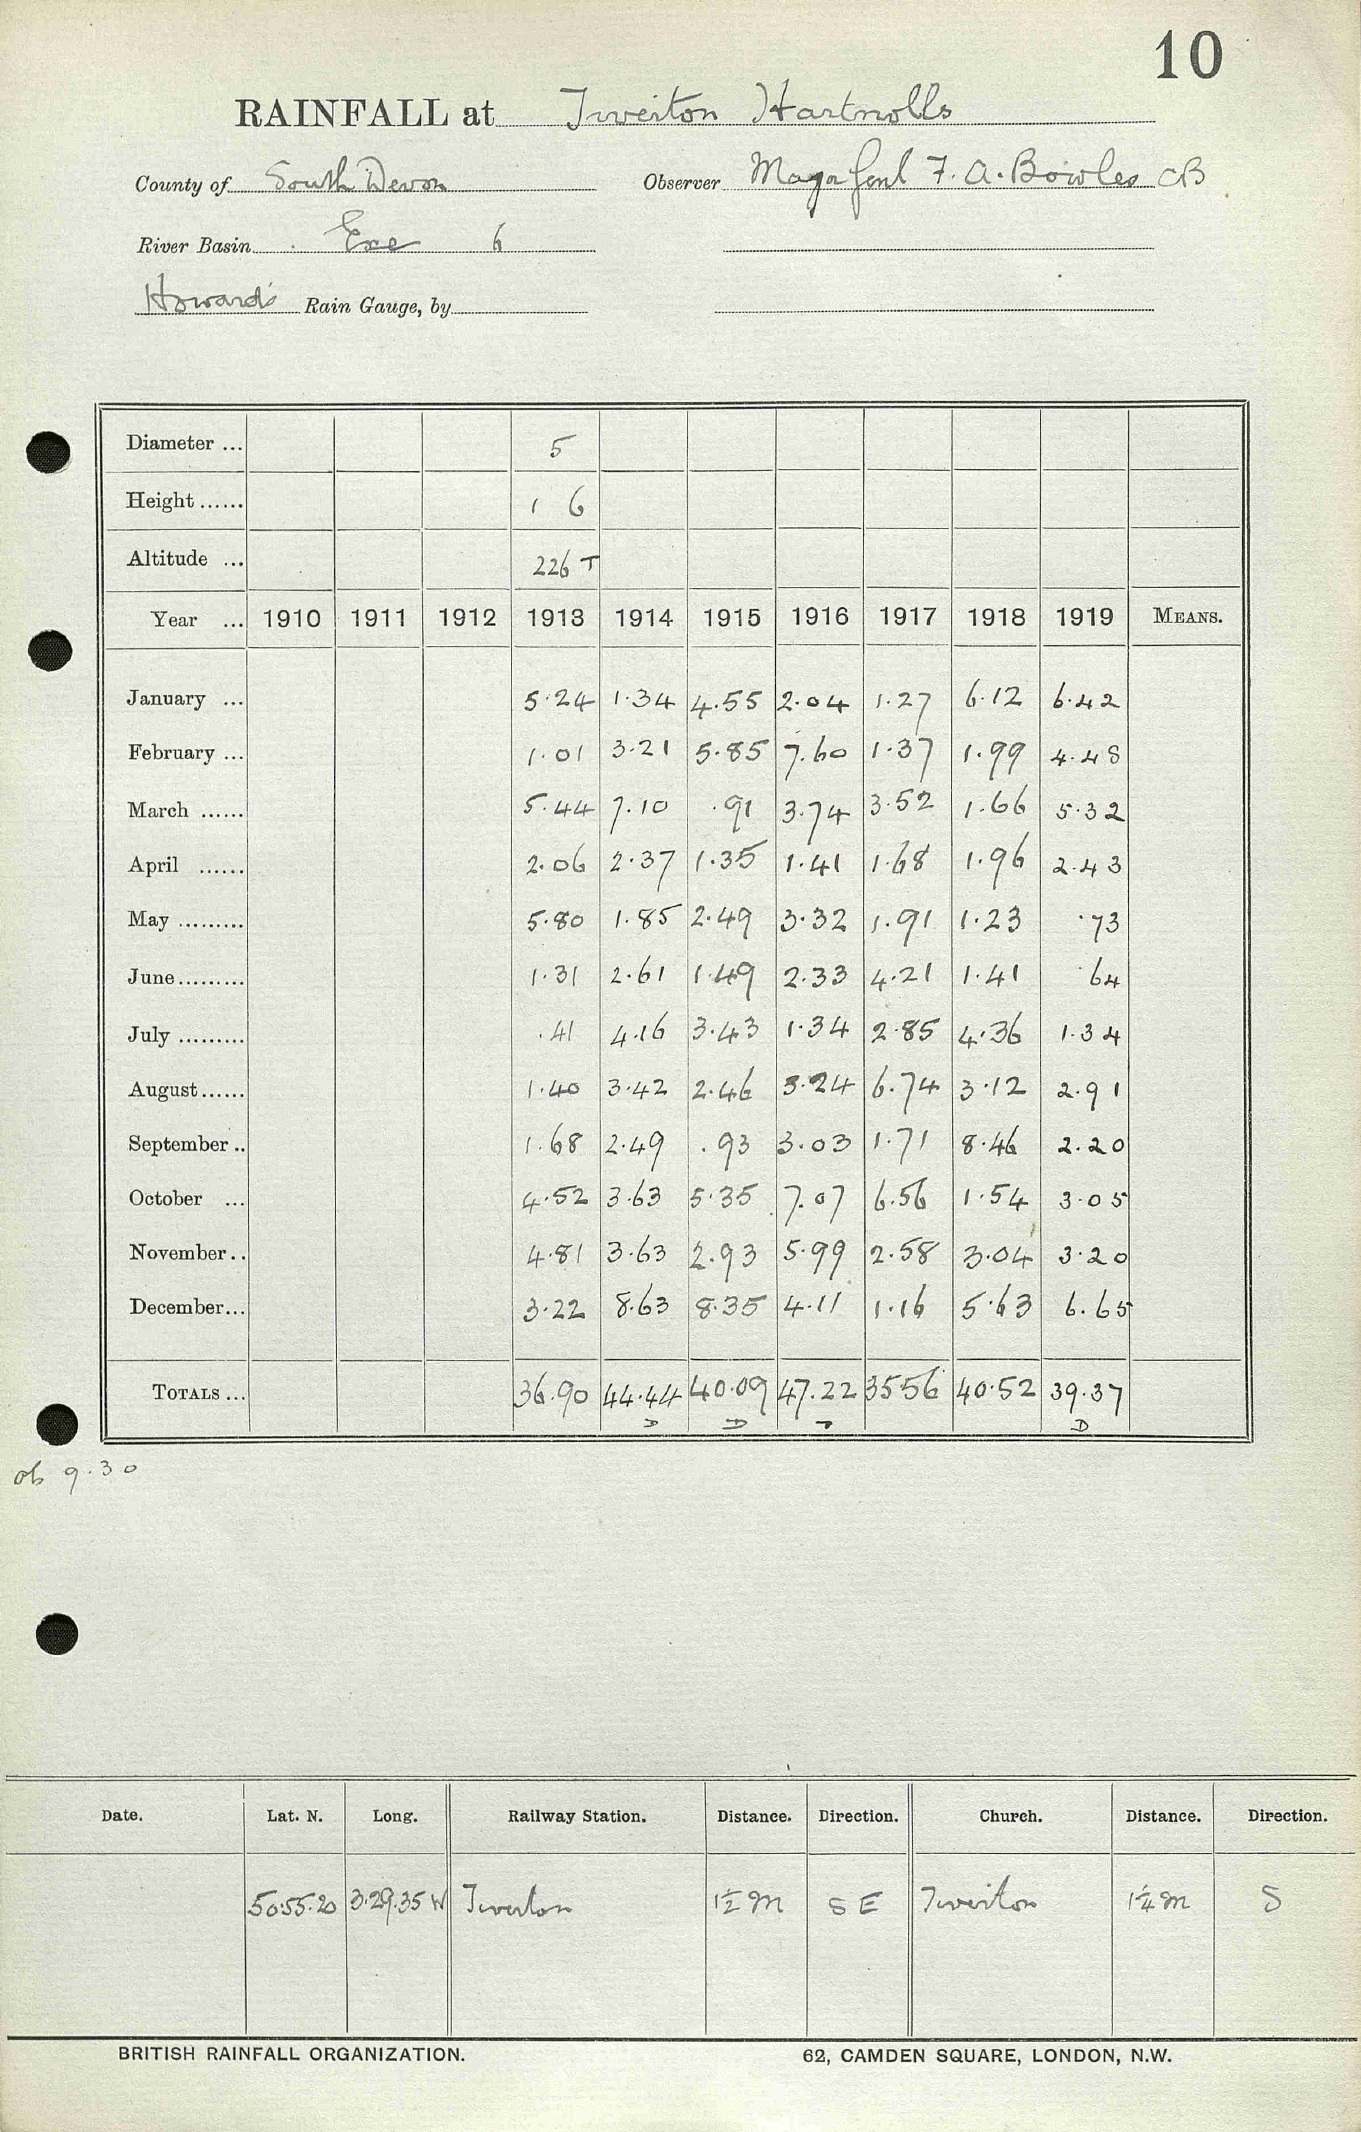 10
RAINFALL at Tiverton Hartnolls
County of South Devon Observer Major Genl F. A. Bowles CB
River Basin Exe 6
Howard's Rain Gauge, by
Diameter ... 5
Height ...... 1 6
Altitude ... 226 T
Year ... 1910 1911 1912 1913 1914 1915 1916 1917 1918 1919 MEANS.
January ... 5.24 1.34 4.55 2.04 1.27 6.12 6.42
February ... 1.01 3.21 5.85 7.60 1.37 1.99 4.48
March ...... 5.44 7.10 .91 3.74 3.52 1.66 5.32
April ...... 2.06 2.37 1.35 1.41 1.68 1.96 2.43
May ......... 5.80 1.85 2.49 3.32 1.91 1.23 .73
June ......... 1.31 2.61 1.49 2.33 4.21 1.41 .64
July ......... .41 4.16 3.43 1.34 2.85 4.36 1.34
August...... 1.40 3.42 2.46 3.24 6.74 3.12 2.91
September .. 1.68 2.49 .93 3.03 1.71 8.46 2.20
October ... 4.52 3.63 5.35 7.07 6.56 1.54 3.05
November .. 4.81 3.63 2.93 5.99 2.58 3.04 3.20
December... 3.22 8.63 8.35 4.11 1.16 5.63 6.65
TOTALS ... 36.90 44.44 40.09 47.22 35 56 40.52 39.37
D D D D
ob 9.30
Date. Lat. N. Long. Railway Station. Distance. Direction. Church. Distance. Direction.
50.55.20 3.29.35 W Tiverton 1½ m S E Tiverton 1¼ m S
BRITISH RAINFALL ORGANIZATION. 62, CAMDEN SQUARE, LONDON, N.W.